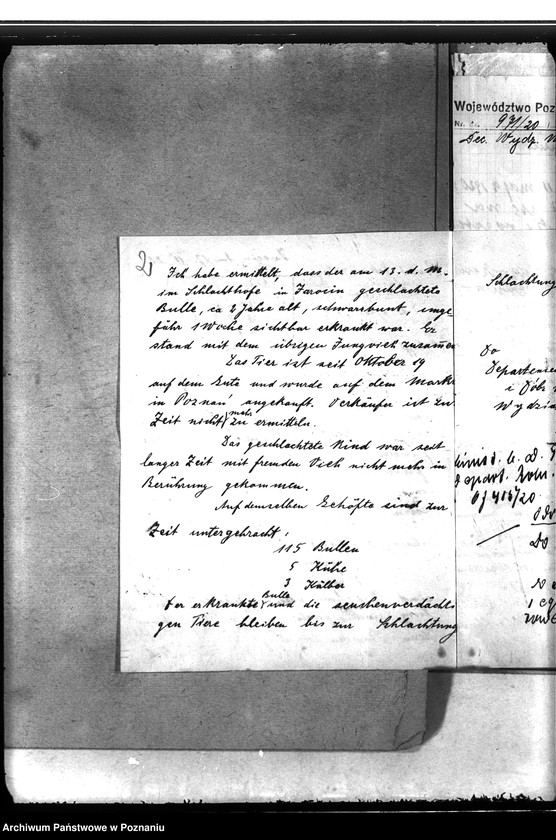 2,
Ich habe ermittelt, dass der am 13. d. M.
im Schlachthofe in Jarocin geschlachtete
Bulle, ca 2 Jahre alt, schwarzbunt, unge-
fähr 1 Woche sichtbar erkrankt war. Er
stand mit dem übrigen Jungvieh zusammen
Das Tier ist seit Oktober 19
auf dem Gute und wurde auf dem Markt
in Poznań angekauft. Verkäufer ist zur
Zeit nicht mehr zu ermitteln.
Das geschlachtete Rind war seit
langer Zeit mit fremden Vieh nicht mehr in
Berührung gekommen.
Auf demselben Gehöfte sind zur
Zeit untergebracht:
115 Bullen
5 Kühe
3 Kälber
Der erkrankte Bulle und die seuchenverdächti
gen Tiere bleiben bis zur Schlachtung
Województwo Poz
Nr. 971/20
Dec. Wydz.
Schlachtung
Do
Departamen
i Dóbr
Wydzia
Do
Archiwum Państwowe w Poznaniu